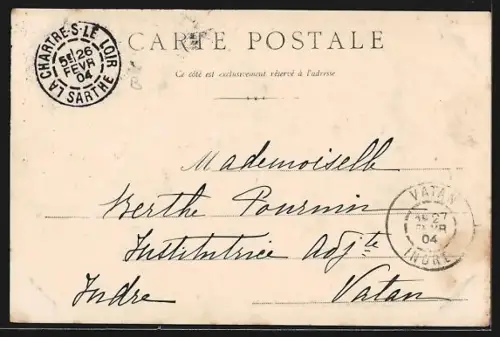 CARTE POSTALE
Ce côté est exclusivement réservé à l'adresse
LA CHARTRE-S-LE LOIR
5E 26
FEVR
04
LA SARTHE
Mademoiselle
Berthe Fournin
Institutrice Adjte
Vatan
Indre
VATAN
1E 27
FEVR
04
INDRE